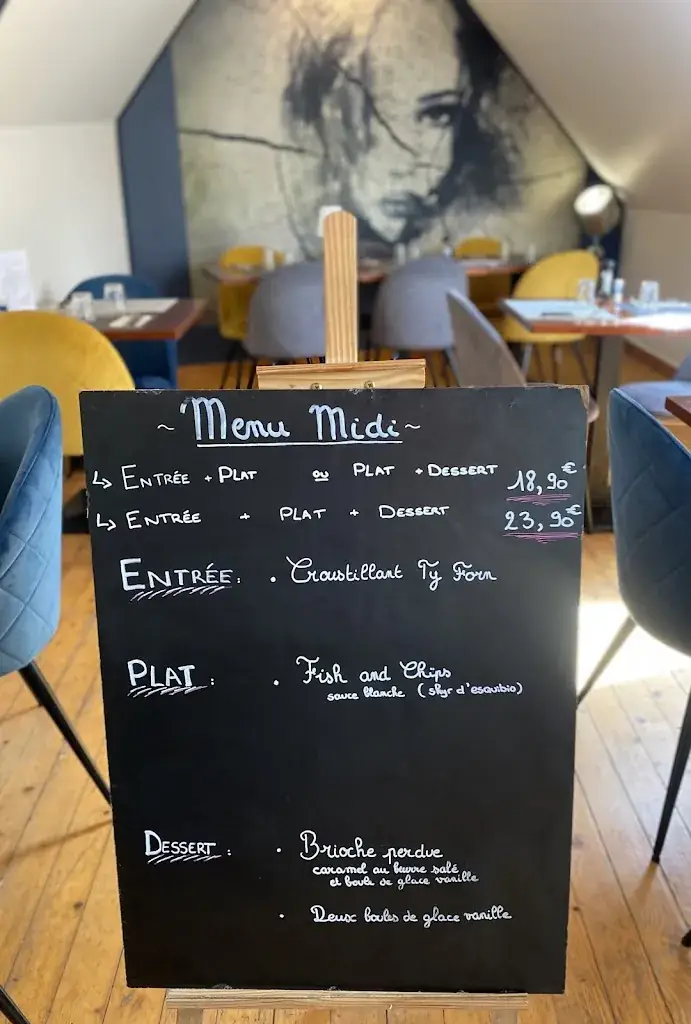 ~ Menu Midi ~
↳ ENTRÉE + PLAT ou PLAT + DESSERT 18,90€
↳ ENTRÉE + PLAT + DESSERT 23,90€
ENTRÉE : • Croustillant Ty Forn
PLAT : • Fish and Chips
sauce blanche (skyr d'esquibio)
DESSERT : • Brioche perdue
caramel au beurre salé
et boule de glace vanille
• Deux boules de glace vanille